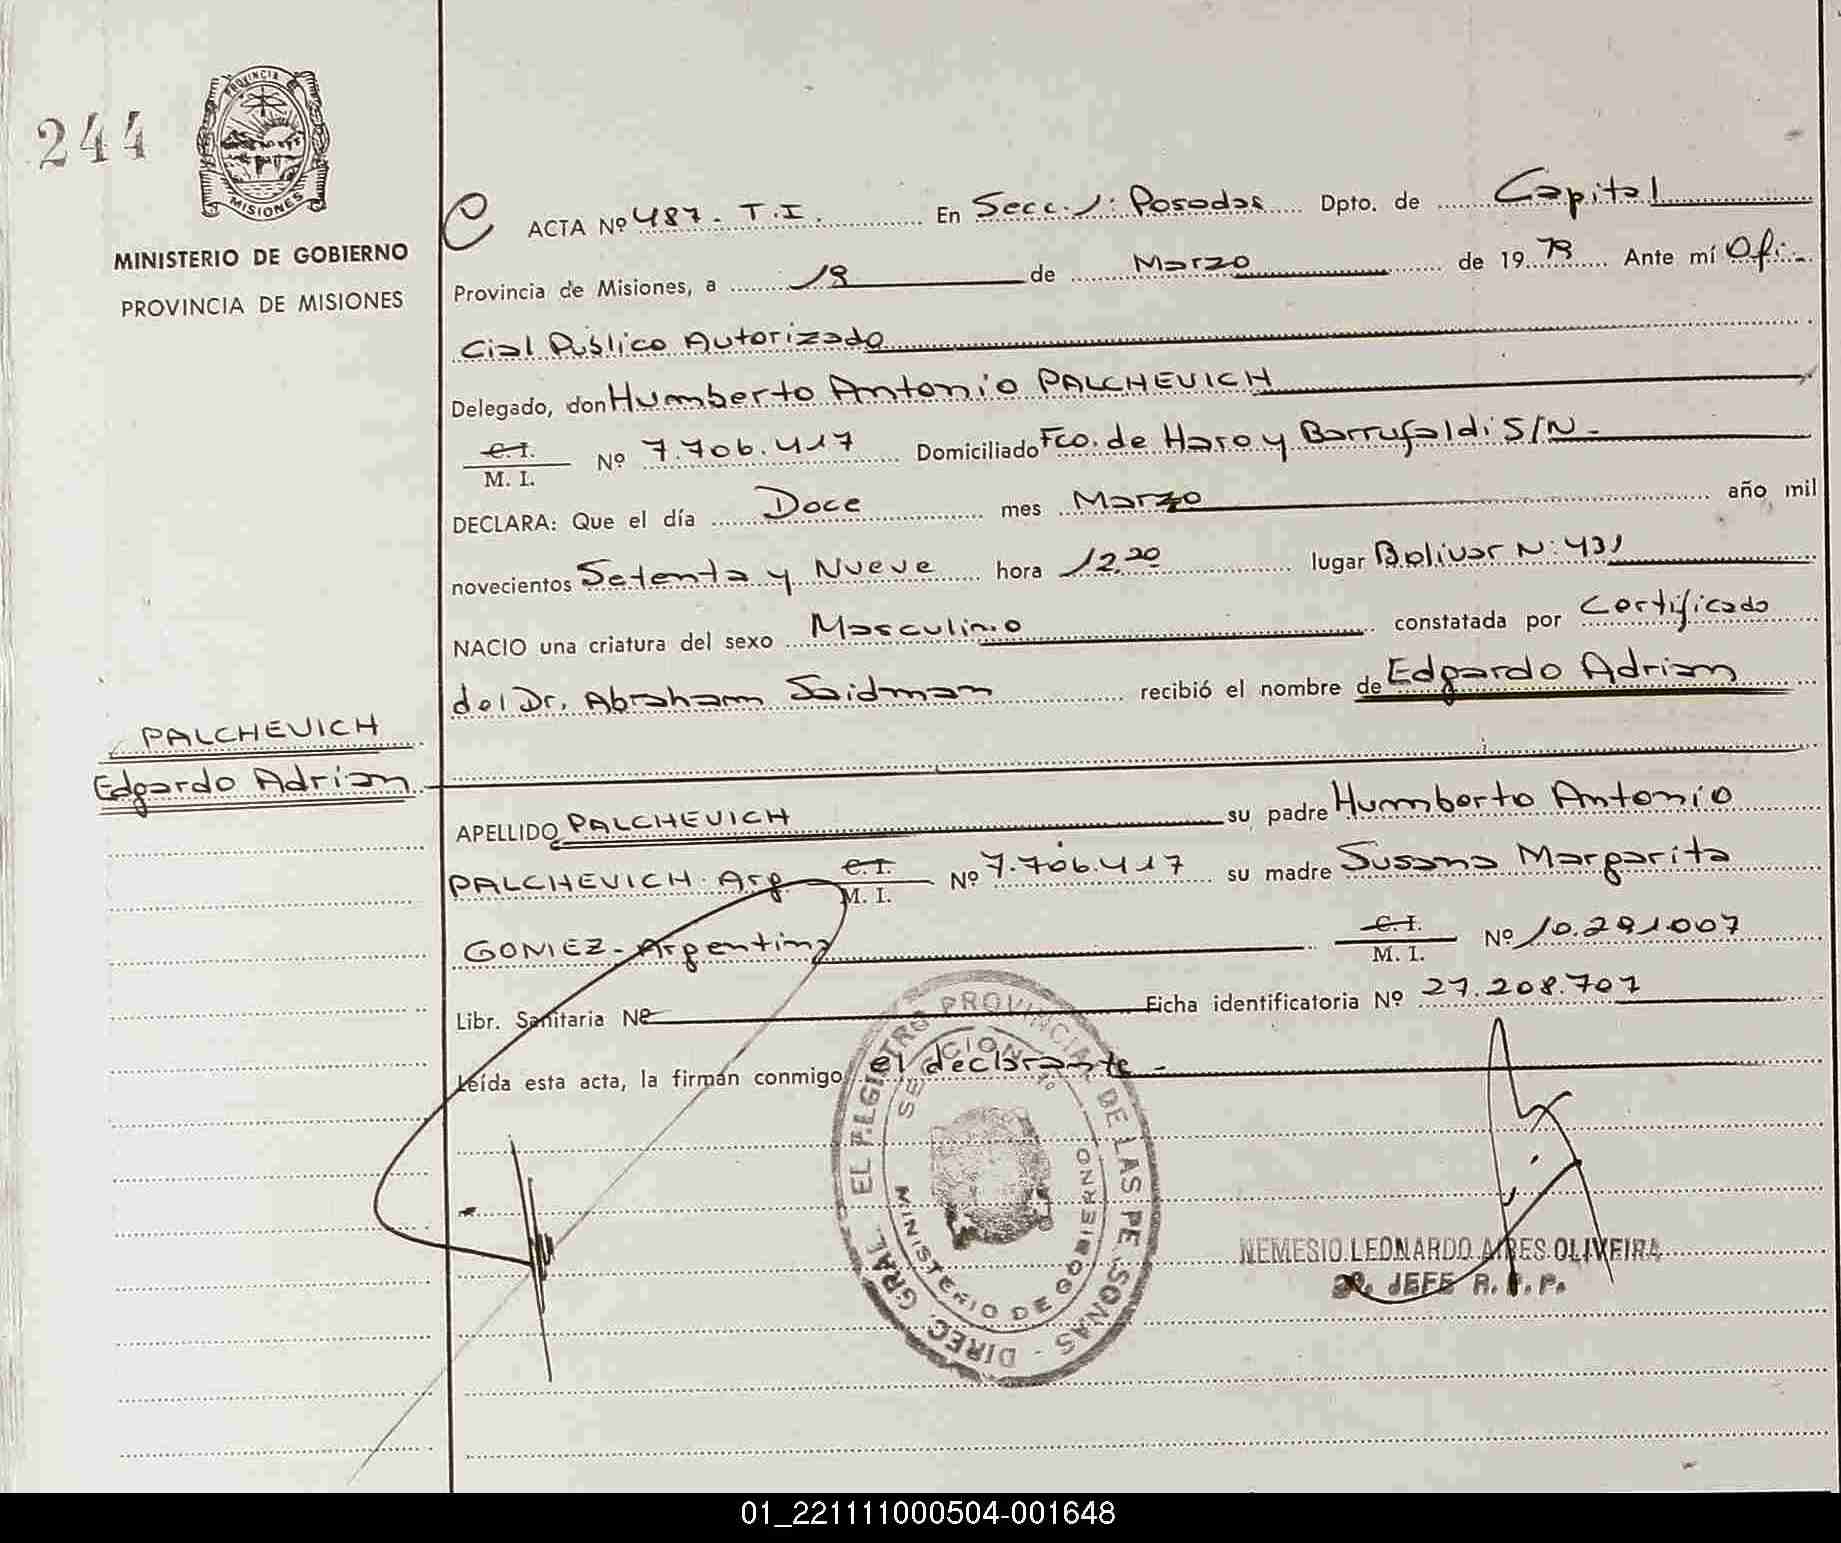 244
PROVINCIA
MISIONES
MINISTERIO DE GOBIERNO
PROVINCIA DE MISIONES
ACTA Nº 487. T.I. En Secc. 1: Posadas Dpto. de Capital
Provincia de Misiones, a 19 de Marzo de 1979 Ante mí Ofi-
cial Público Autorizado
Delegado, don Humberto Antonio PALCHEVICH
C.I. / M. I. Nº 7.706.417 Domiciliado Fco. de Haro y Barrufaldi S/N.-
DECLARA: Que el día Doce mes Marzo año mil
novecientos Setenta y Nueve hora 12.20 lugar Bolivar N: 431
NACIO una criatura del sexo Masculino constatada por Certificado
del Dr. Abraham Saidman recibió el nombre de Edgardo Adrian
PALCHEVICH
Edgardo Adrian
APELLIDO PALCHEVICH su padre Humberto Antonio
PALCHEVICH. Arg C.I. / M. I. Nº 7.706.417 su madre Susana Margarita
GOMEZ- Argentina C.I. / M. I. Nº 10.291.007
Libr. Sanitaria Nº Ficha identificatoria Nº 27.208.707
Leída esta acta, la firman conmigo el declarante -
DIREC. GRAL. EL REGISTRO PROVINCIAL DE LAS PERSONAS -
SECCION 1º
MINISTERIO DE GOBIERNO
NEMESIO LEONARDO AIRES OLIVEIRA
JEFE R. P. P.
01_221111000504-001648